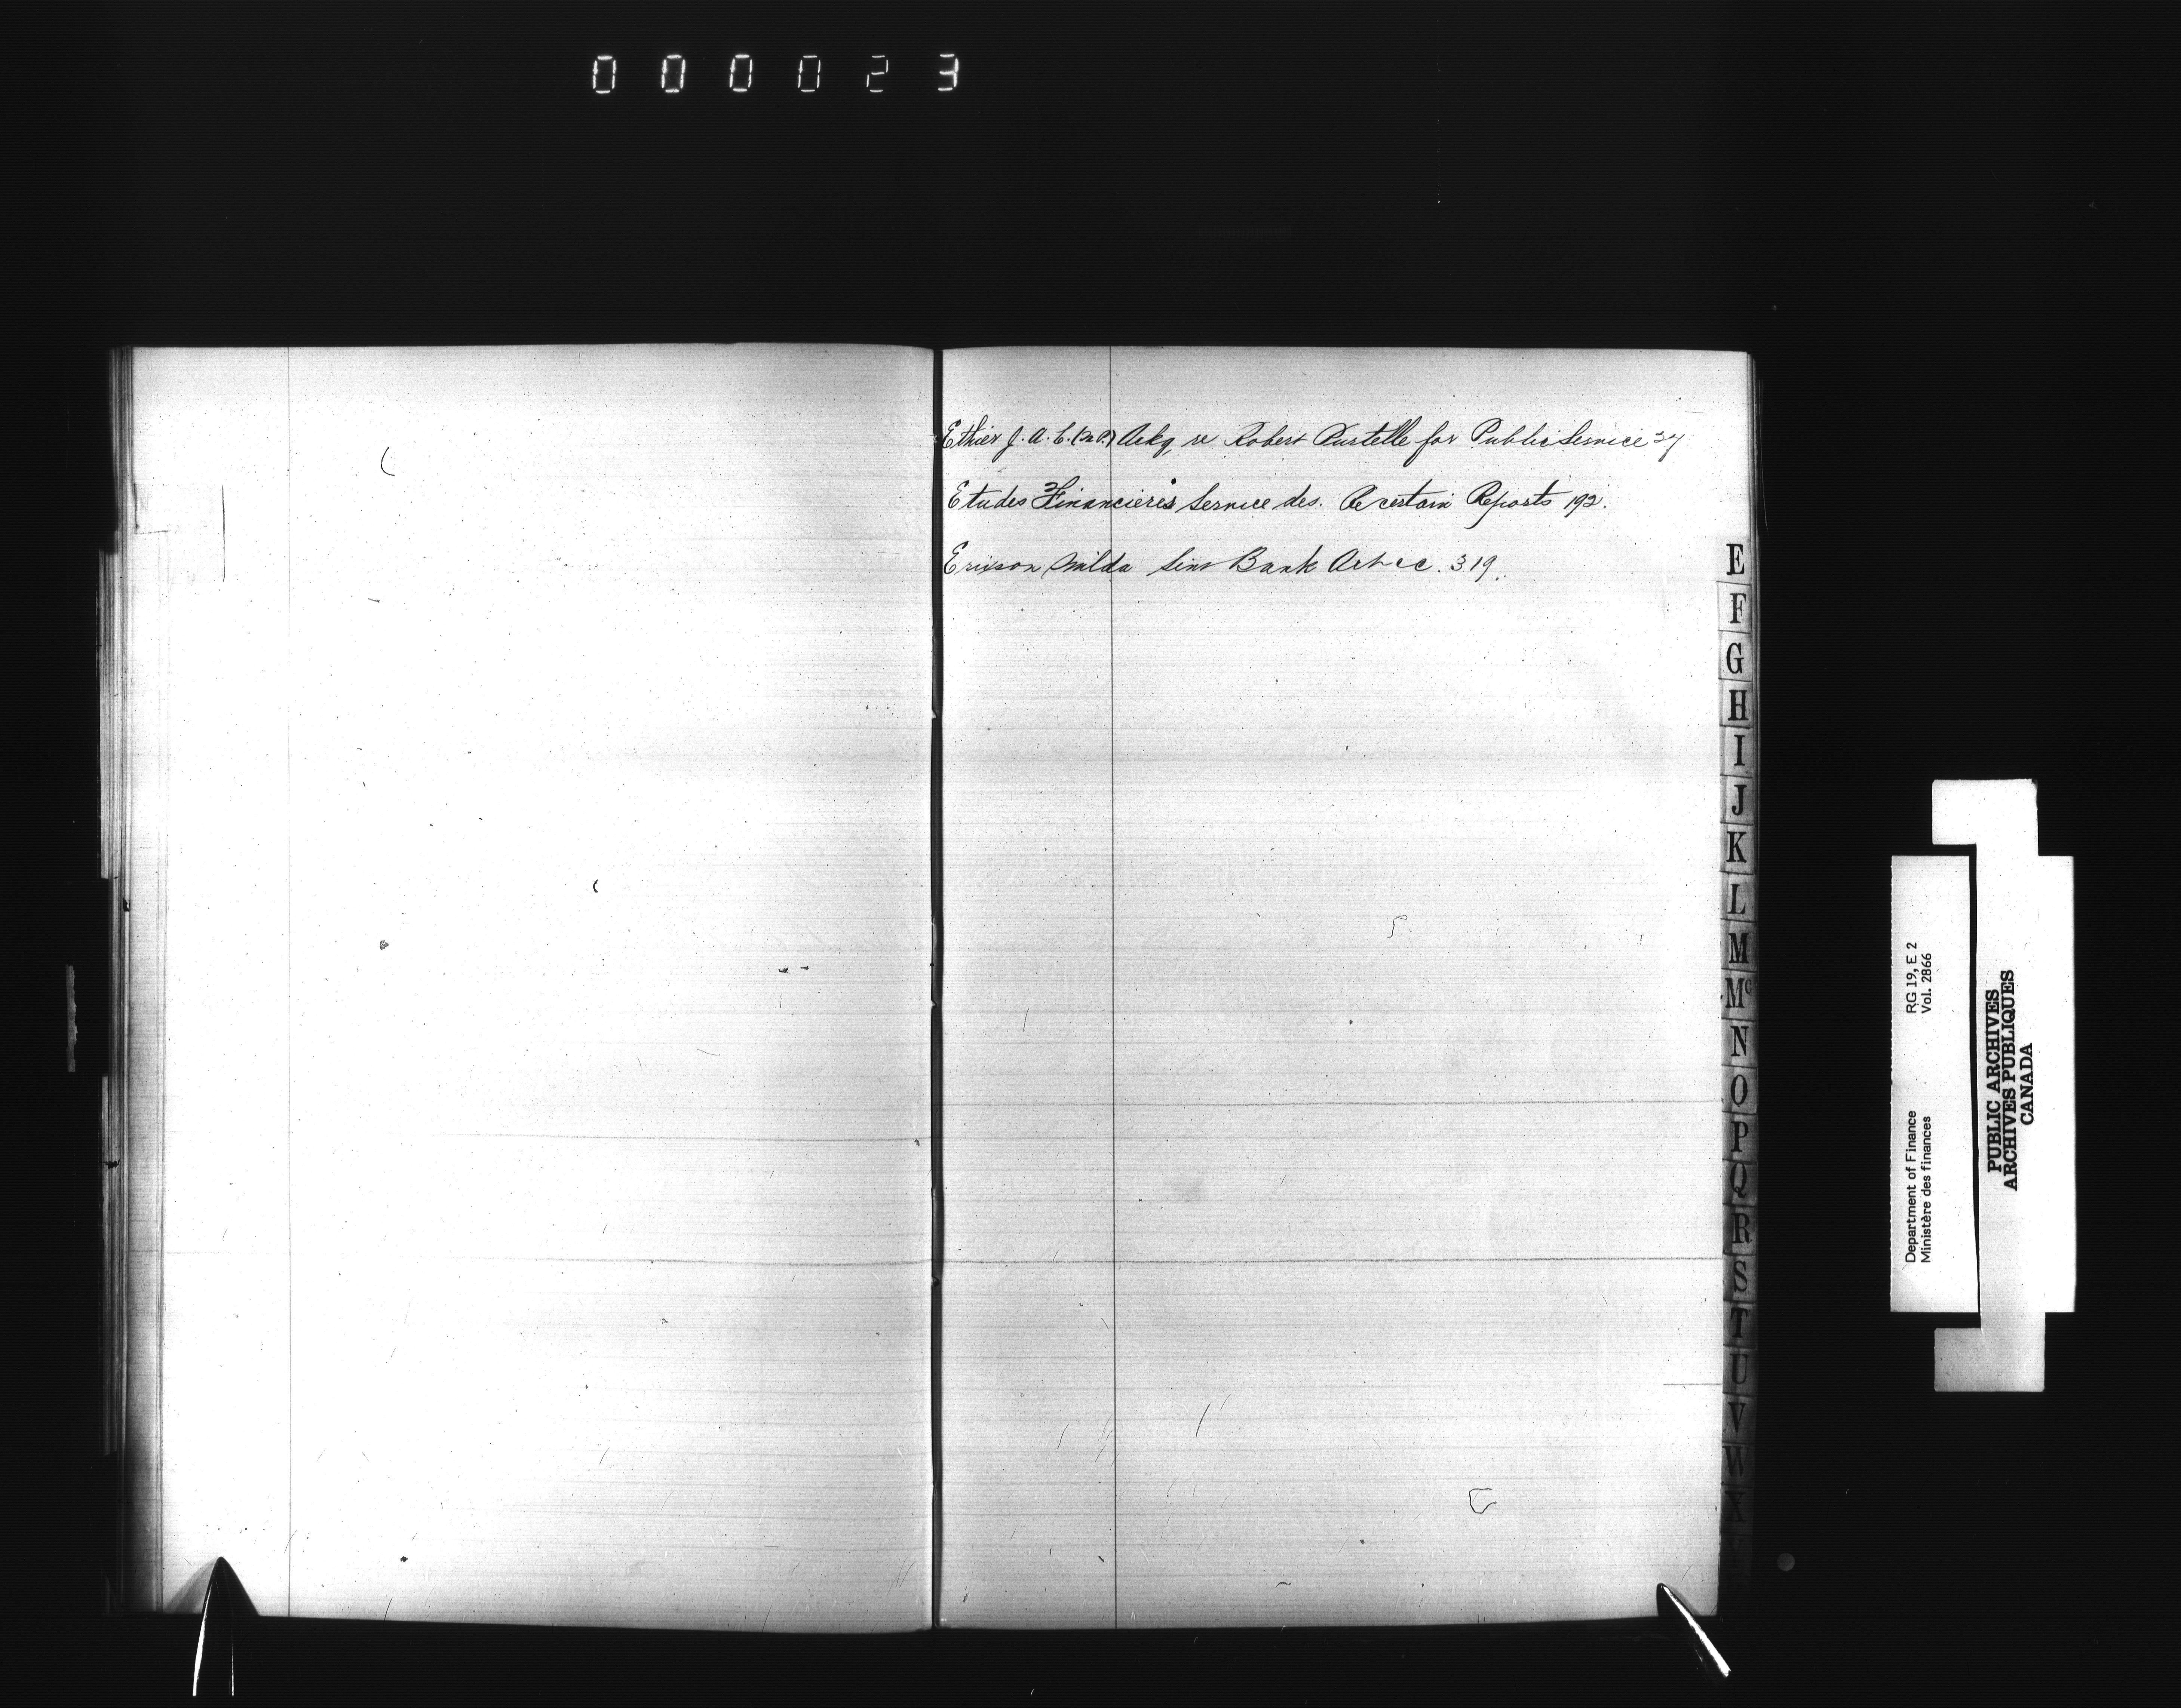 000023
Ethier J. A. C. (M.P.) Ackg. re Robert for Public Service 37
Etudes Financieres Service des. Re certain Reports 192.
Erixson Hilda Bank 319.
E
F
G
H
I
J
K
L
M
Mc
N
O
P
Q
R
S
T
U
V
W
X
Department of Finance RG 19, E 2
Ministère des finances Vol. 2866
PUBLIC ARCHIVES
ARCHIVES PUBLIQUES
CANADA